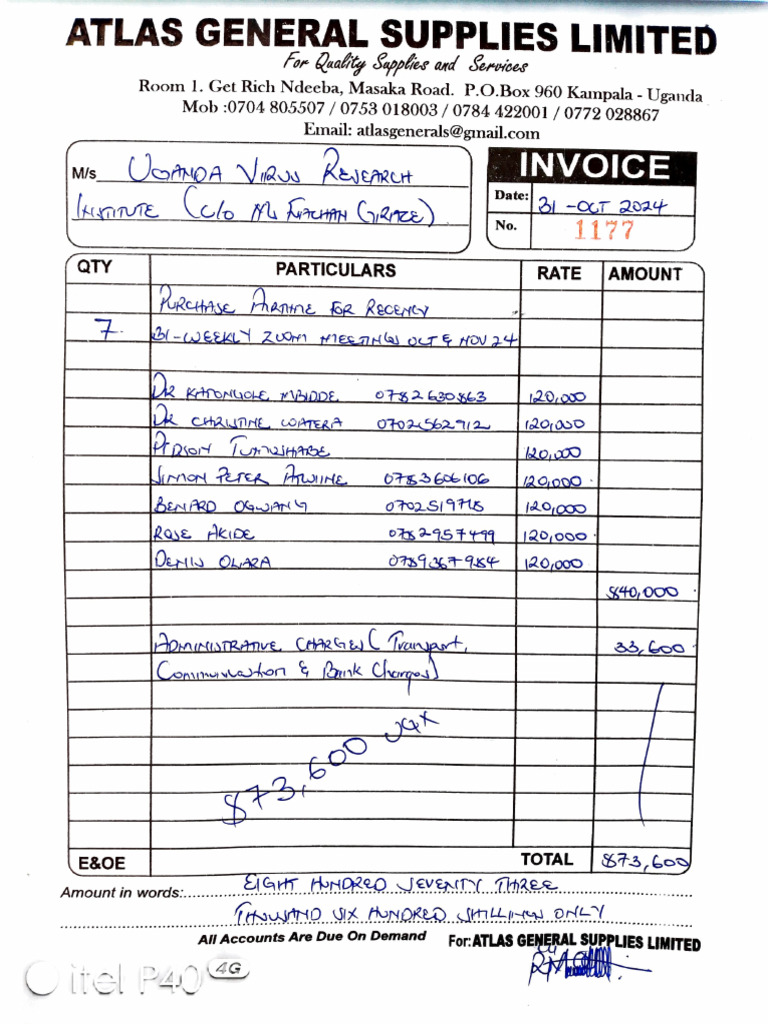 ATLAS GENERAL SUPPLIES LIMITED
For Quality Supplies and Services
Room 1. Get Rich Ndeeba, Masaka Road. P.O.Box 960 Kampala - Uganda
Mob :0704 805507 / 0753 018003 / 0784 422001 / 0772 028867
Email: atlasgenerals@gmail.com
M/s UGANDA VIRUS RESEARCH
INSTITUTE (C/O
INVOICE
Date: 31-OCT 2024
No. 1177
QTY PARTICULARS RATE AMOUNT
PURCHASE AIRTIME FOR RECENCY
7 BI-WEEKLY ZOOM MEETINGS OCT & NOV 24
DR KATONGOLE MBIDDE 0782630863 120,000
DR CHRISTINE WATERA 0702562912 120,000
120,000
SIMON PETER 0783606106 120,000
BENARD OGWANG 120,000
ROSE AKIDE 0782957499 120,000
DENIS OLARA 0789367984 120,000
840,000
ADMINISTRATIVE CHARGES (Transport, 33,600
Communication & Bank Charges)
873,600 UGX
E&OE TOTAL 873,600
Amount in words: EIGHT HUNDRED SEVENTY THREE
THOUSAND SIX HUNDRED SHILLINGS ONLY
All Accounts Are Due On Demand For: ATLAS GENERAL SUPPLIES LIMITED
itel P40 4G